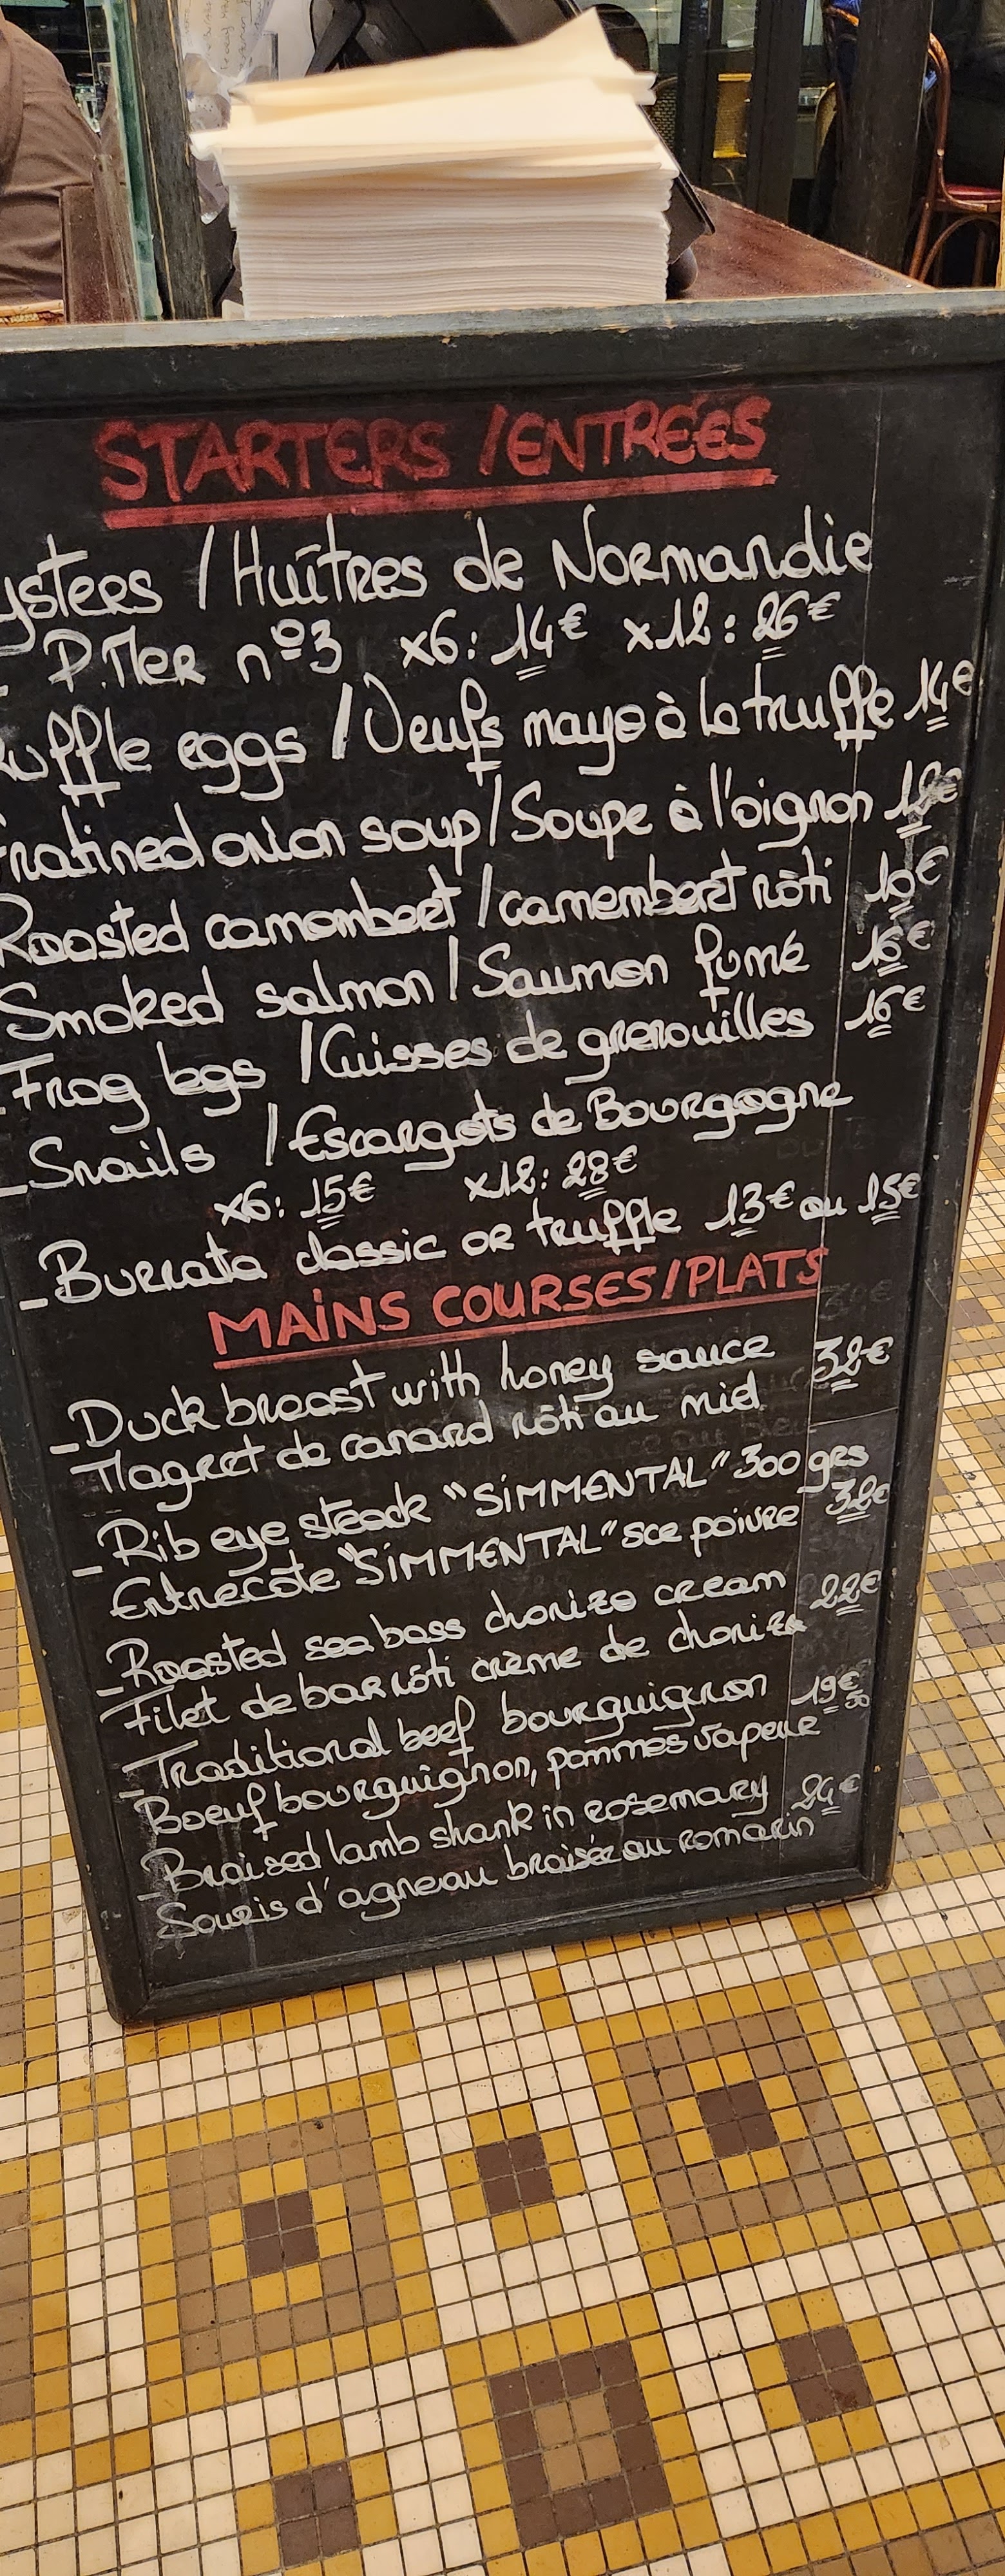 STARTERS / ENTRÉES
ysters / Huîtres de Normandie
- P.Mer nº3 x6: 14€ x12: 26€
ruffle eggs / Oeufs mayo à la truffe 14€
ratined onion soup / Soupe à l'oignon
Roasted camembert / camembert rôti
Smoked salmon / Saumon fumé 16€
- Frog legs / Cuisses de grenouilles 16€
- Snails / Escargots de Bourgogne
x6: 15€ x12: 28€
- Burrata classic or truffle 13€ ou 15€
MAINS COURSES / PLATS
- Duck breast with honey sauce 32€
Magret de canard rôti au miel
- Rib eye steack "SIMMENTAL" 300 grs
Entrecôte "SIMMENTAL" sce poivre 32€
- Roasted sea bass chorizo cream 22€
Filet de bar rôti crème de chorizo
- Traditional beef bourguignon 19€50
Boeuf bourguignon, pommes vapeur
- Braised lamb shank in rosemary 24€
Souris d'agneau braisée au romarin